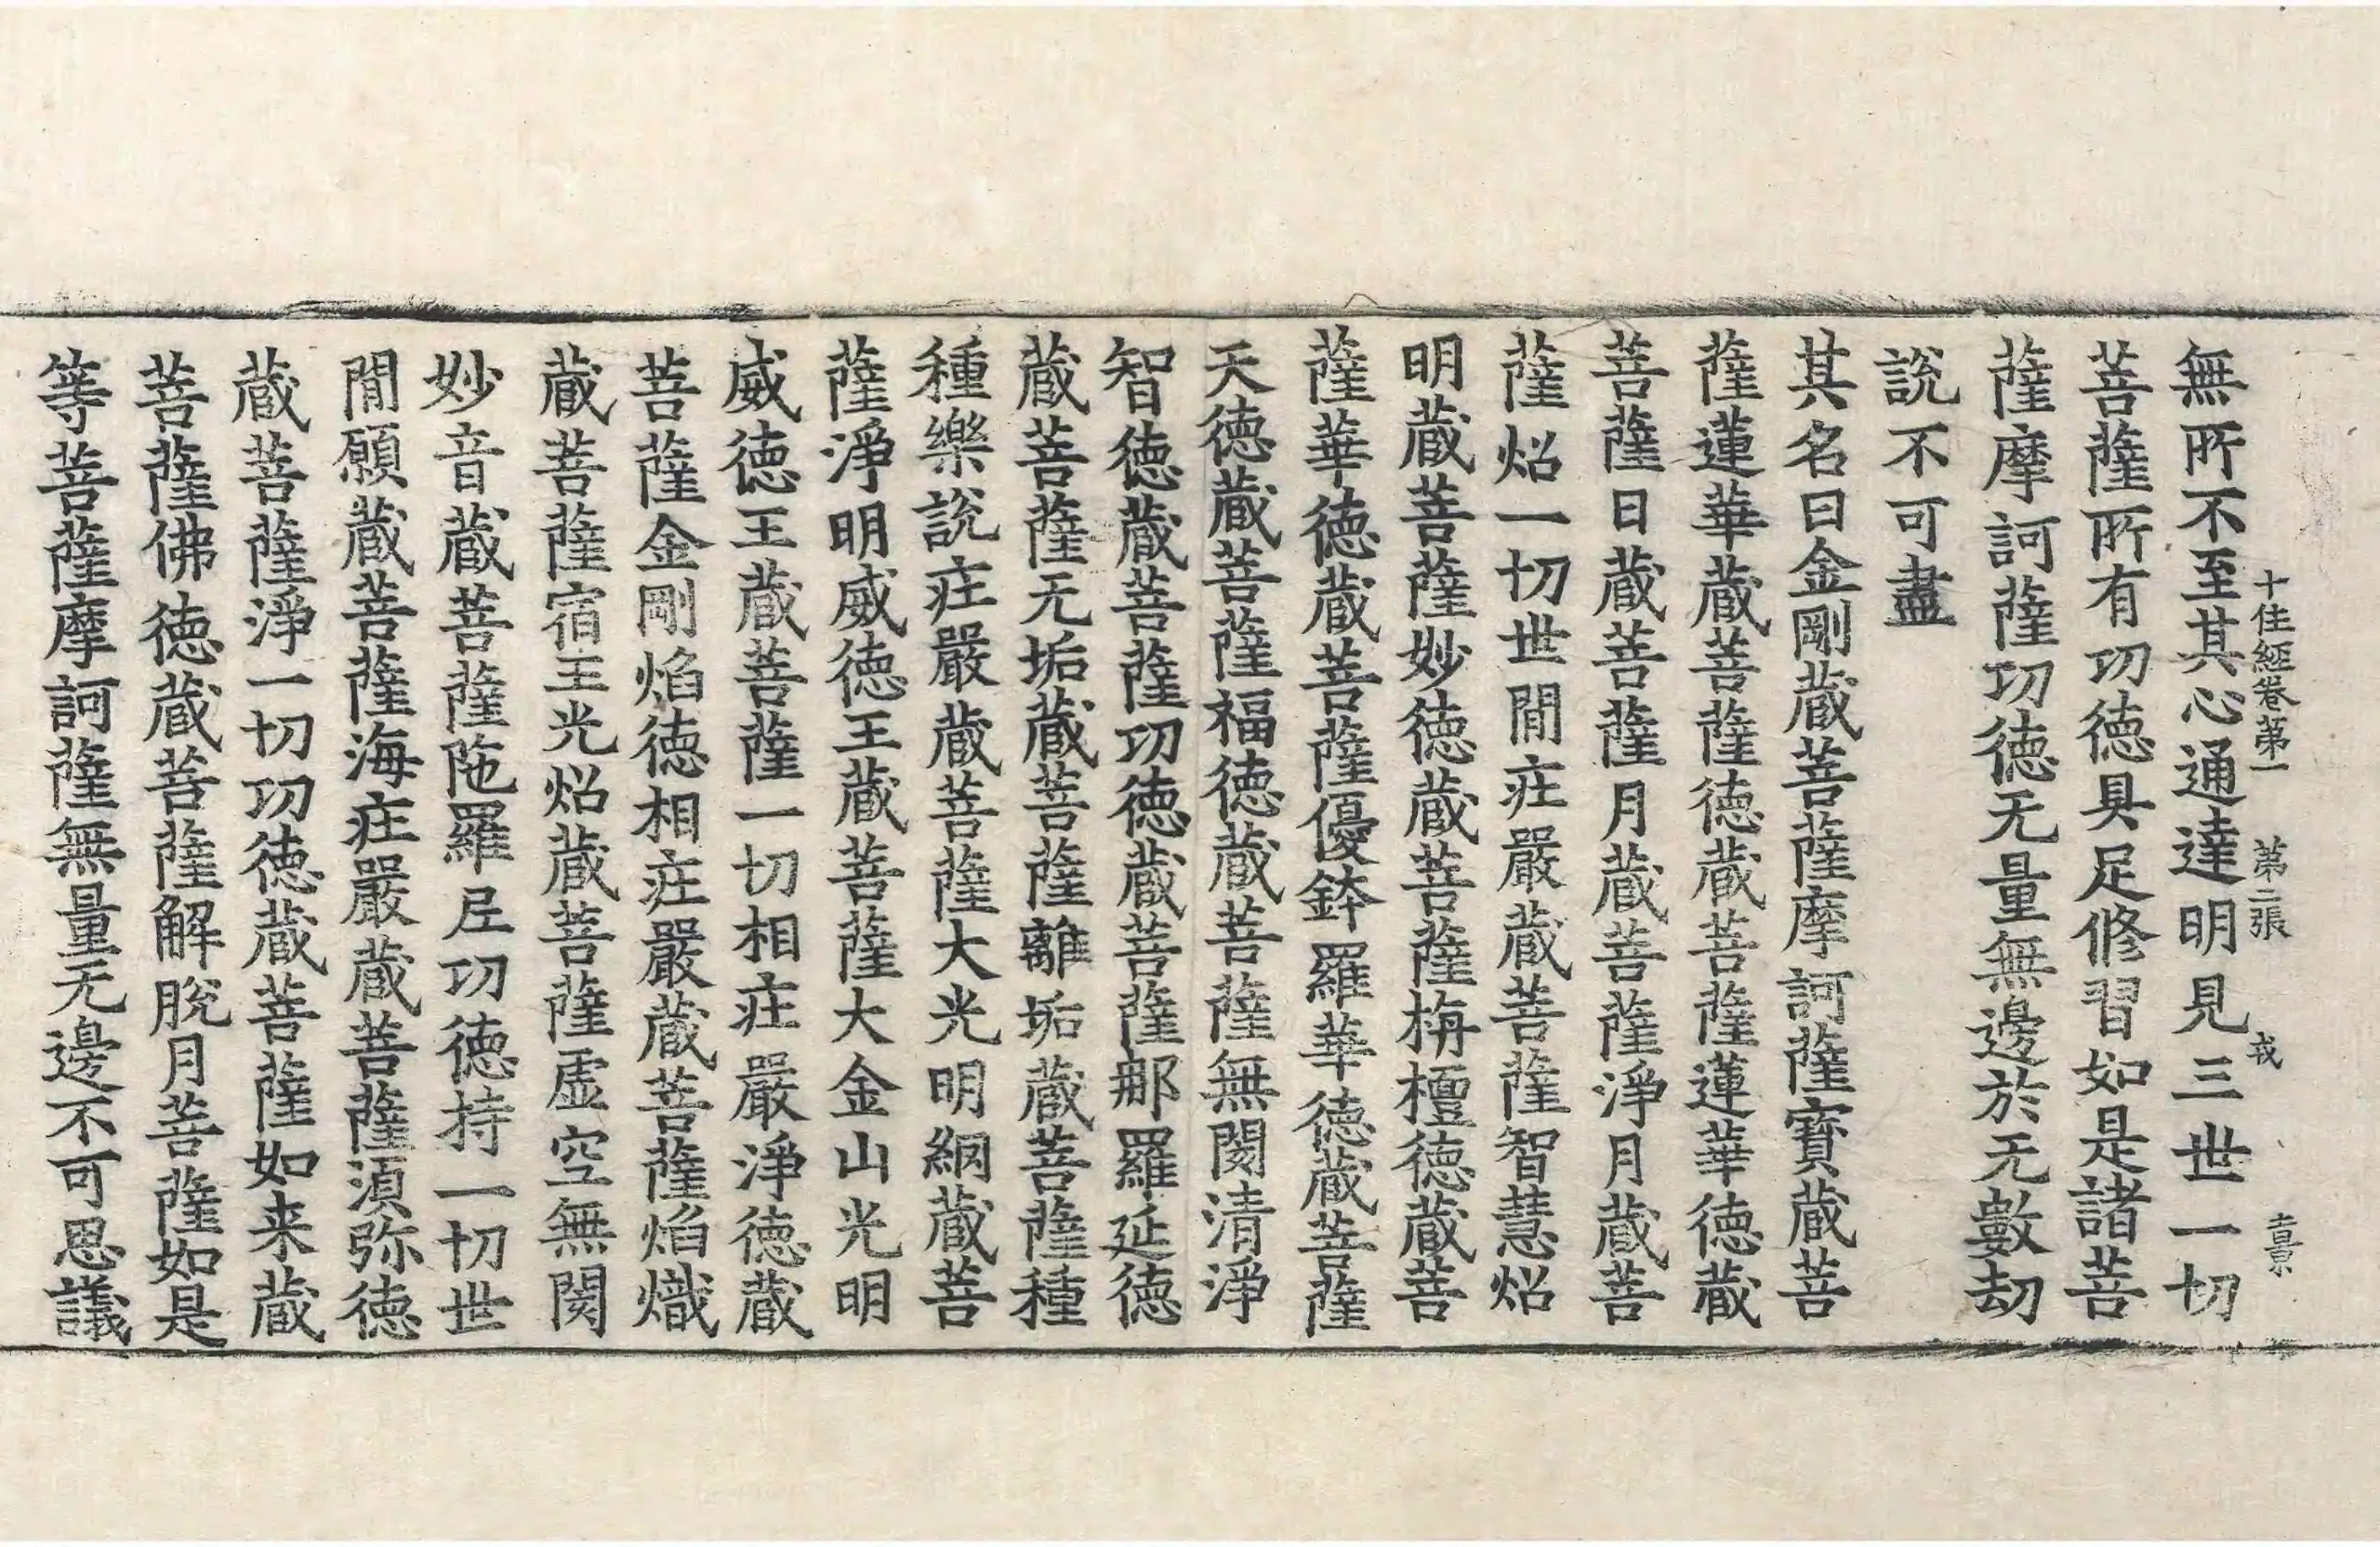 十住經卷第一 第二張 戎
無所不至其心通達明見三世一切
菩薩所有功德具足修習如是諸菩
薩摩訶薩功德无量無邊於无數劫
說不可盡
其名曰金剛蔵菩薩摩訶薩寶蔵菩
薩蓮華蔵菩薩德蔵菩薩蓮華德蔵
菩薩日蔵菩薩月蔵菩薩淨月蔵菩
薩炤一切世間庄嚴蔵菩薩智慧炤
明蔵菩薩妙德蔵菩薩栴檀德蔵菩
薩華德蔵菩薩優鉢羅華德蔵菩薩
天德蔵菩薩福德蔵菩薩無閡清淨
智德蔵菩薩功德蔵菩薩那羅延德
蔵菩薩无垢蔵菩薩離垢蔵菩薩種
種樂說庄嚴蔵菩薩大光明網蔵菩
薩淨明威德王蔵菩薩大金山光明
威德王蔵菩薩一切相庄嚴淨德蔵
菩薩金剛焰德相庄嚴蔵菩薩焰熾
蔵菩薩宿王光炤蔵菩薩虛空無閡
妙音蔵菩薩陁羅尼功德持一切世
間願蔵菩薩海庄嚴蔵菩薩須弥德
蔵菩薩淨一切功德蔵菩薩如来蔵
菩薩佛德蔵菩薩解脫月菩薩如是
等菩薩摩訶薩無量无邊不可思議